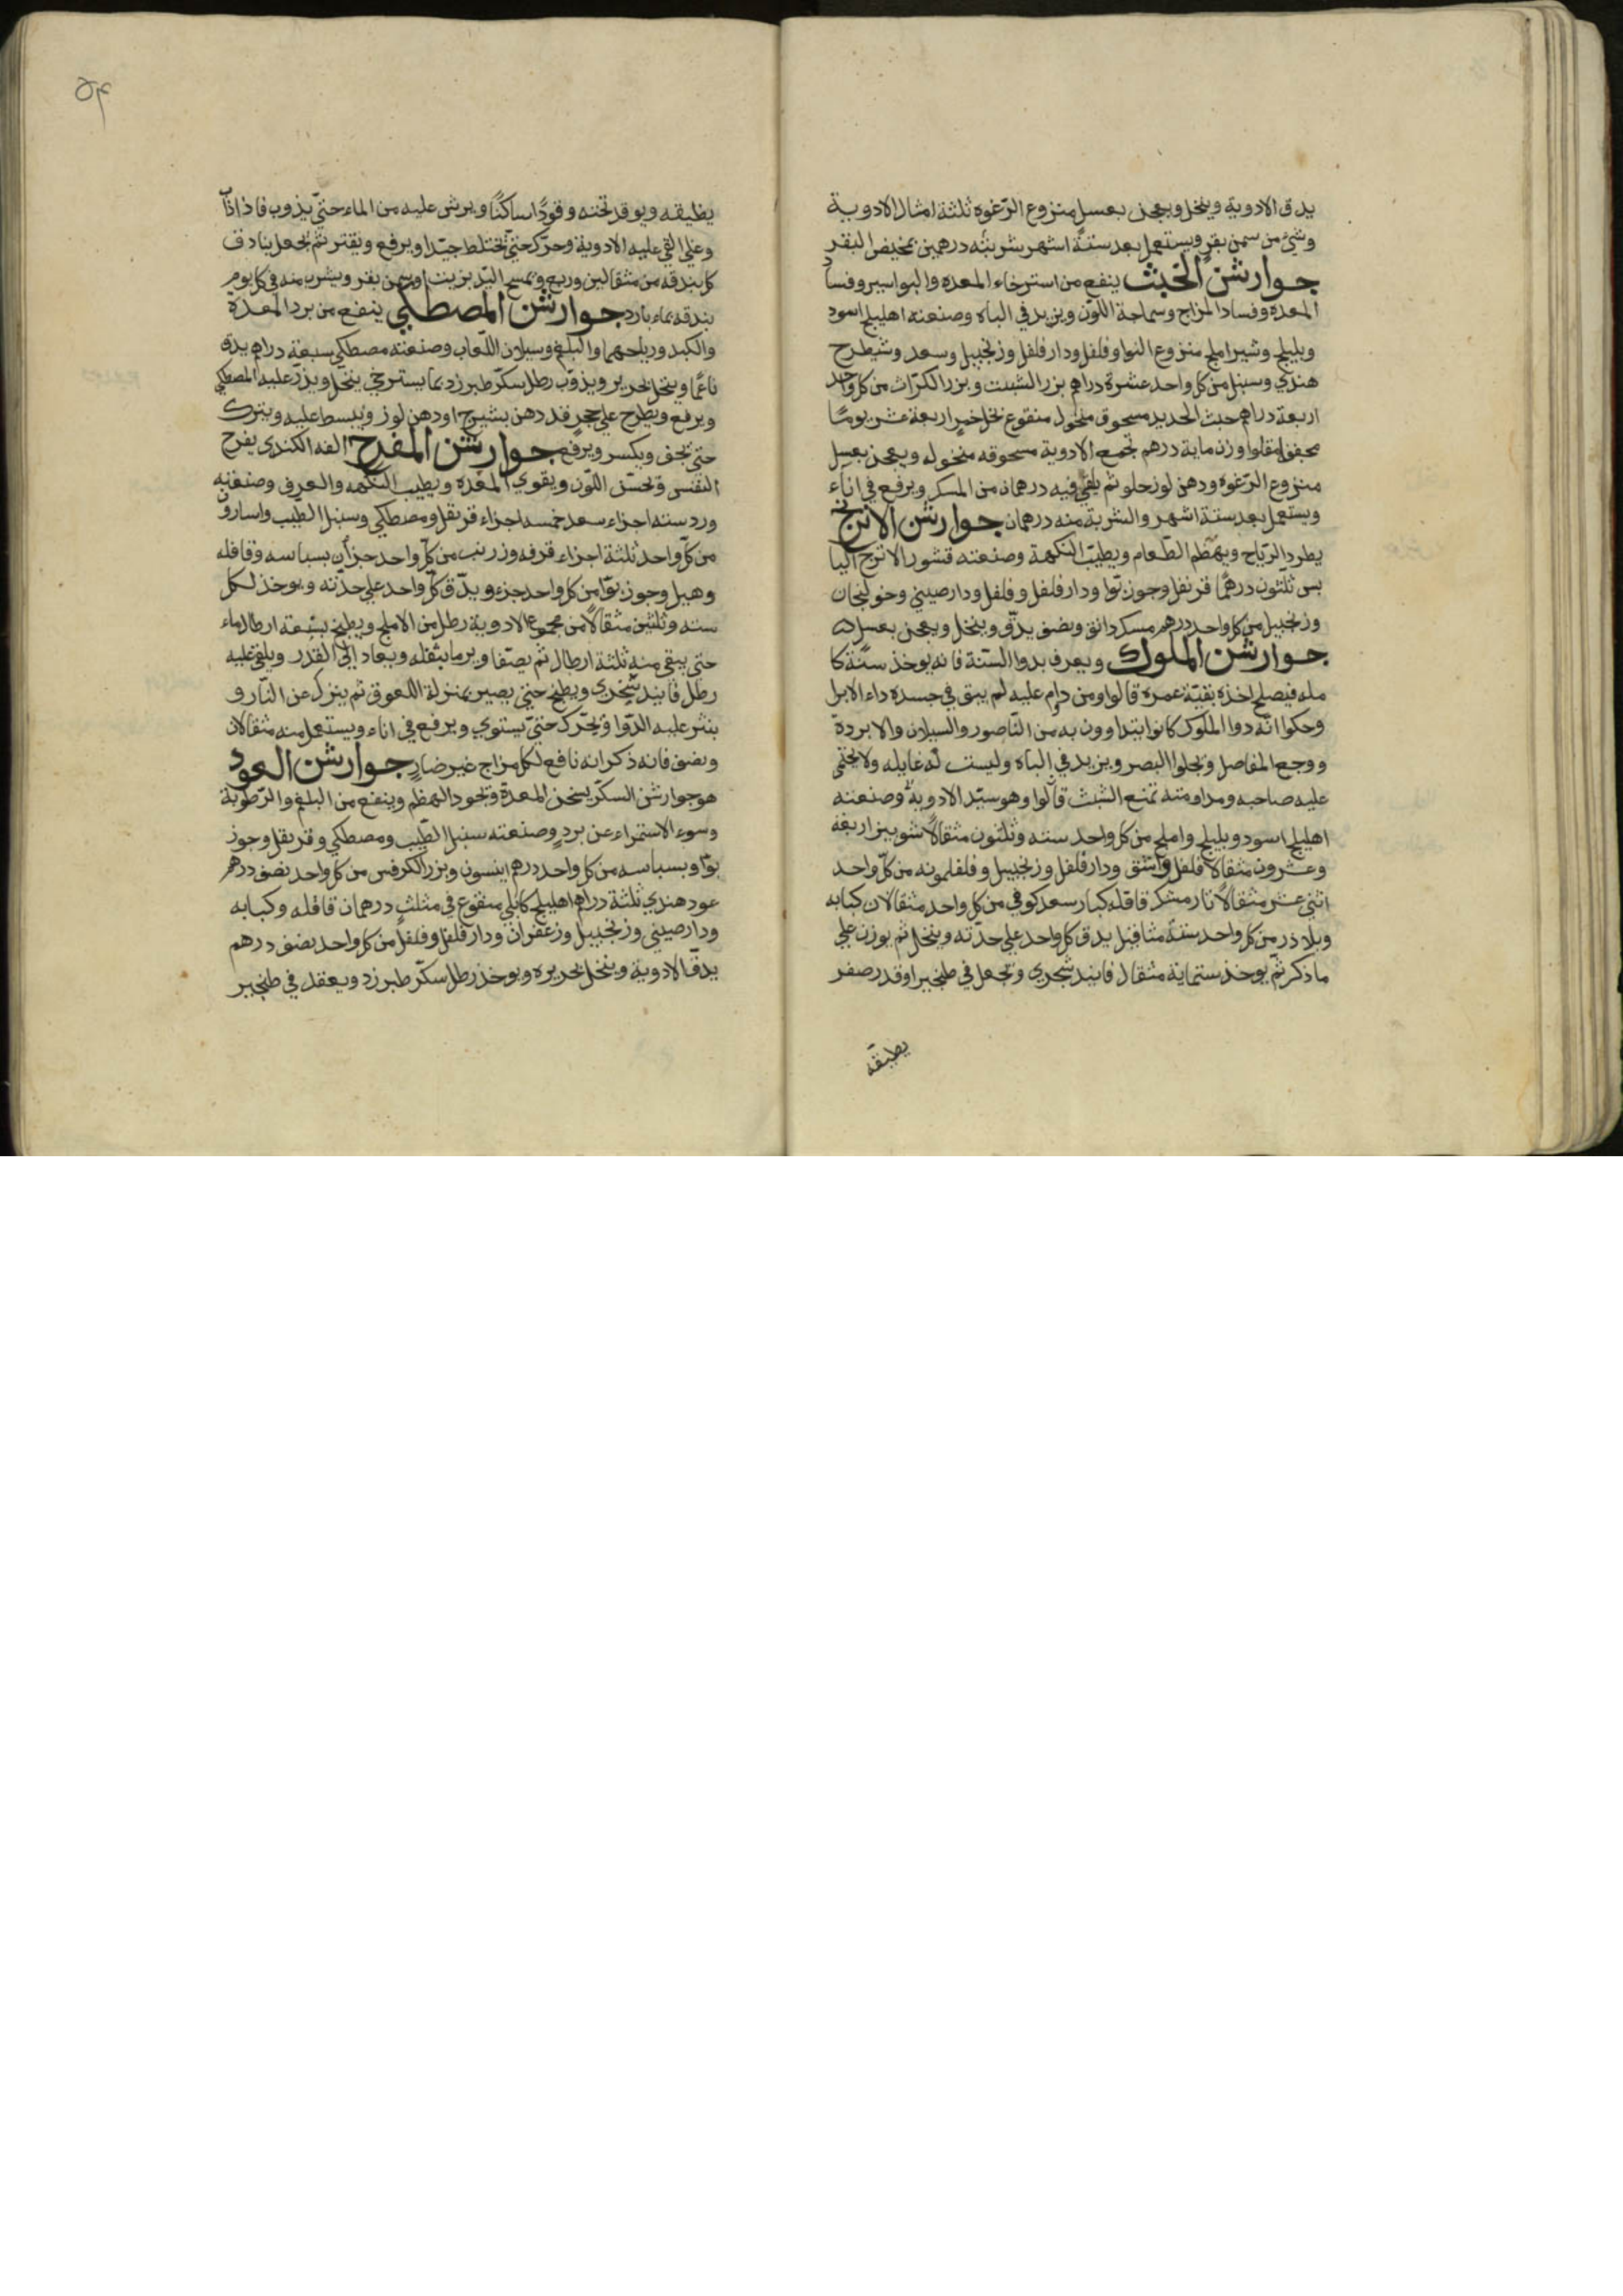 يدق الادوية وينخل ويعجن بعسل منزوع الرّغوه ثلثة امثال الادوية
وشيء من سمن بقر ويستعمل بعد ستة اشهر شربته درهمين بمخيض البقر
جوارشن الخبث ينفع من استرخاء المعده والبواسير وفساد
المعده وفساد المزاج وسماجة اللّون ويزيد في الباه وصنعته اهليلج اسود
وبليلج وشير املج منزوع النوا وفلفل ودارفلفل وزنجبيل وسعد وشيطرح
هندي وسنبل من كل واحد عشرة دراهم بزر الشبت وبزر الكرّاث من كل واحد
اربعة دراهم خبث الحديد مسحوق منخول منقوع بخل خمر اربعة عشر يومًا
مجفف مقلوا وزن ماية درهم تجمع الادوية مسحوقه منخوله ويعجن بعسل
منزوع الرّغوه ودهن لوز حلو ثم يلقى فيه درهمان من المسك ويرفع في اناء
ويستعمل بعد ستة اشهر والشربة منه درهمان جوارشن الاترج
يطرد الرّياح ويهضم الطّعام ويطيّب النكهة وصنعته قشور الاترج اليا
بس ثلثون درهمًا قرنفل وجوز بوّا ودارفلفل وفلفل ودارصيني وخولنجان
وزنجبيل من كل واحد درهم مسك دانق ونصف يدقّ وينخل ويعجن بعسل
جوارشن الملوك ويعرف بدوا السّنة فانه يوخذ سنة كا
مله فيصلح اخذه بقيّة عمره قالوا ومن دام عليه لم يبق في جسده داء الا برا
وحكوا انّه دوا الملوك كانوا يتداوون به من النّاصور والسيلان والابردة
ووجع المفاصل ويجلوا البصر ويزيد في الباه وليست له غايله ولا يحتمى
عليه صاحبه ومداومته تمنع الشيب قالوا وهو سيّد الادوية وصنعته
اهليلج اسود وبليلج واملج من كل واحد سته وثلثون مثقالاً شونيز اربعة
وعشرون مثقالا فلفل واشق ودارفلفل وزنجبيل وفلفلمونه من كلّ واحد
اثني عشر مثقالاً نارمشك قاقله كبار سعد كوفي من كل واحد مثقالان كبابه
وبلاذر من كل واحد ستة مثاقيل يدق كل واحد علي حدّته وينخل ثم يوزن علي
ما ذكر ثمّ يوخذ ستماية مثقال فانيد شجري وتجعل في طنجير او قدر صفر
يطبقه
٥٤
يطبقه ويوقد تحته وقودًا ساكنًا ويرش عليه من الماء حتّي يذوب فاذا ذاب
وغلي القي عليه الادوية وحرّك حتّي تختلط جيّدا ويرفع ويفتر ثم تجعل بنادق
كل بندقه من مثقالين وربع وتمسح اليد بزيت او سمن بقر ويشرب منه في كل يوم
بندقه بماء بارد جوارشن المصطكي ينفع من برد المعدة
والكبد ورياحهما والبلغم وسيلان اللّعاب وصنعته مصطكي سبعة دراهم يدق
ناعمًا وينخل بحرير ويذوّب رطل سكّر طبرزد بما يسترخي ينخل ويذرّ عليه المصطكي
ويرفع ويطرح علي حجر قد دهن بشيرج او دهن لوز ويبسط عليه ويترك
حتي يجف ويكسر ويرفع جوارشن المفرح الفه الكندي يفرح
النفس ويحسّن اللّون ويقوي المعده ويطيب النكهه والعرق وصنعته
ورد سته اجزاء سعد خمسه اجزاء قرنفل ومصطكي وسنبل الطّيب واسارون
من كلّ واحد ثلثة اجزاء قرفه وزرنب من كلّ واحد جزأن بسباسه وقاقله
وهيل وجوز بوّا من كل واحد جزء ويدّق كلّ واحد علي حدّته ويوخذ لكل
سته وثلثين مثقالاً من مجموع الادوية رطل من الاملج ويطبخ بتسعة ارطال ماء
حتى يبقي منه ثلثة ارطال ثم يصفا ويرما بثفله ويعاد إلى القدر ويلقي عليه
رطل فانيد شجري ويطبخ حتي يصير بمنزلة اللعوق ثم ينزل عن النّار و
ينثر عليه الدّوا ويحرّك حتيّ يستوي ويرفع في اناء ويستعمل منه مثقالان
ونصف فانه ذكر انه نافع لكل مزاج غير ضار جوارشن العود
هو جوارشن السكّر يسخن المعدة ويجود الهضم وينفع من البلغم والرّطوبة
وسوء الاستمراء عن برد وصنعته سنبل الطّيب ومصطكي وقرنفل وجوز
بوّا وبسباسه من كل واحد درهم انيسون وبزر الكرفس من كل واحد نصف درهم
عود هندي ثلثة دراهم اهليلج كابلي منقوع في مثلث درهمان قاقله وكبابه
ودارصيني وزنجبيل وزعفران ودارفلفل وفلفل من كل واحد نصف درهم
يدقّ الادوية وينخل بحريره ويوخذ رطل سكّر طبرزد ويعقد في طنجير